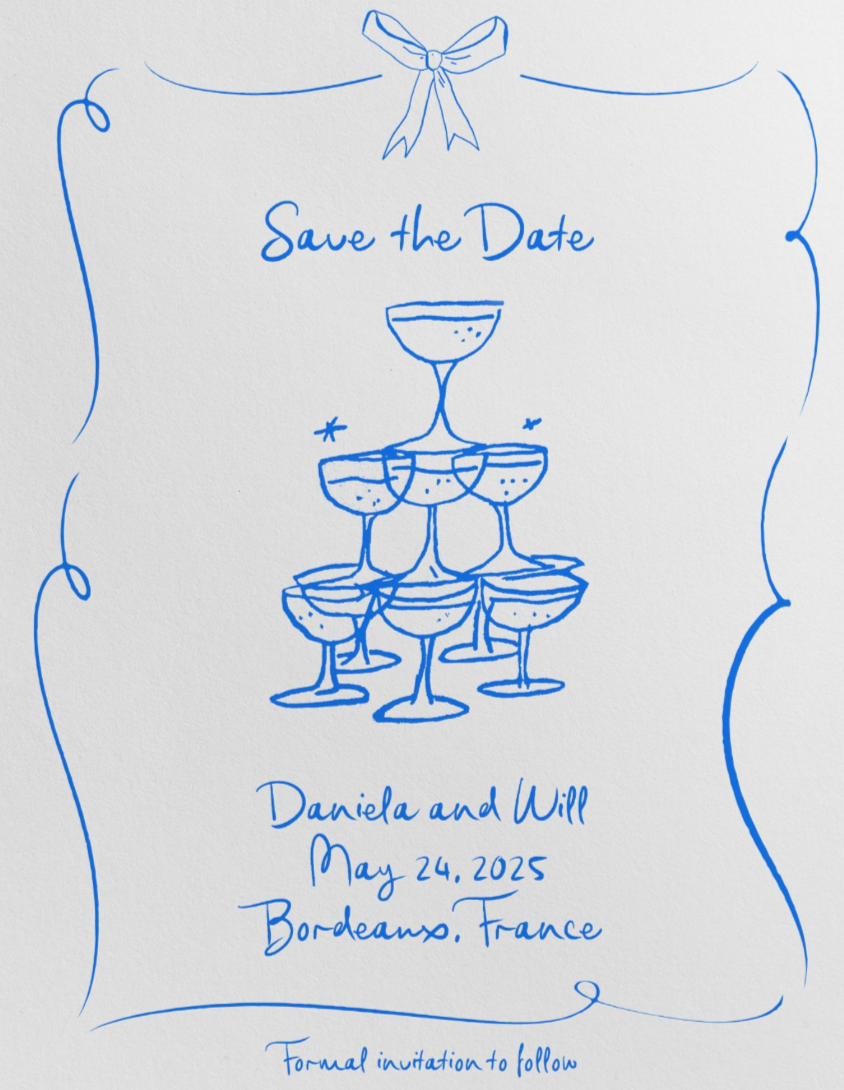 Save the Date
Daniela and Will
May 24, 2025
Bordeaux, France
Formal invitation to follow